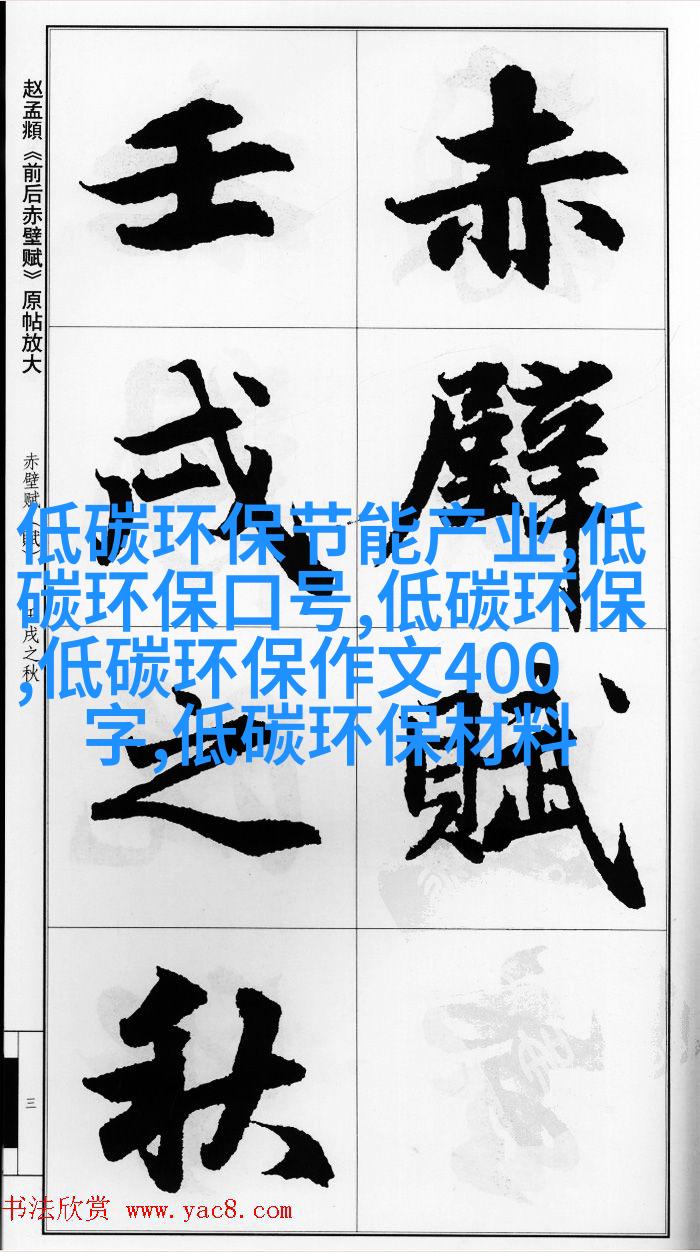 赤壁賦
壬戌之秋
赵孟頫《前后赤壁赋》原帖放大
赤壁赋（賦）
壬戌之秋
三
低碳环保节能产业,低
碳环保口号,低碳环保
,低碳环保作文400
字,低碳环保材料
书法欣赏 www.yac8.com